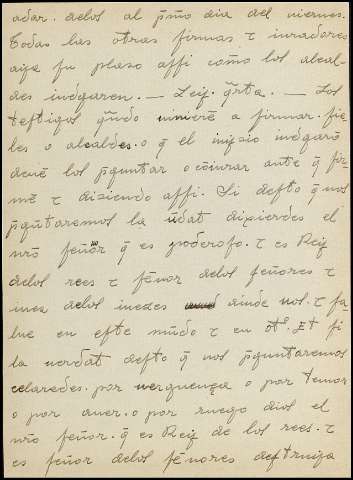 adar. delos al p̃mo dia del uiernes.
Todas las otras firmas τ iuradores
aya fu plazo affi como los alcal-
des iudgaren. — Leij. q̃rta. — Los
teftigos q̃ndo uinierẽ a firmar. fie-
les o alcaldes. o q̃ el iuyzio iudgarõ
deuẽ los p̃guntar o cõiurar ante q̃ fir-
mẽ τ diziendo affi. Si defto q̃ uos
p̃gũtaremos la ũdat dixierdes el
nr̃o feñor q̃ es poderofo. τ es Reij
delos rees τ feñor delos feñores τ
iuez delos iuezes aiude uos. τ fa-
lue en efte mũdo τ en ot̃º. Et fi
la uerdat defto q̃ uos p̃guntaremos
celaredes. por uerguença o por temor
o por auer. o por ruego dios el
nr̃o feñor. q̃ es Reij de los rees. τ
es feñor delos feñores deftruija